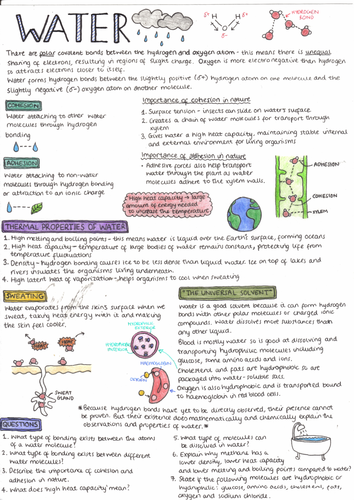 WATER
δ+
δ+
O
H
H
δ-
HYDROGEN
BOND
There are polar covalent bonds between the hydrogen and oxygen atom - this means there is unequal
sharing of electrons, resulting in regions of slight charge. Oxygen is more electronegative than hydrogen
so attracts electrons closer to itself.
Water forms hydrogen bonds between the slightly positive (δ+) hydrogen atom on one molecule and the
slightly negative (δ-) oxygen atom on another molecule.
COHESION
Water attaching to other water
molecules through hydrogen
bonding
ADHESION
Water attaching to non-water
molecules through hydrogen bonding
or attraction to an ionic charge
Importance of cohesion in nature
1. Surface tension - insects can slide on water's surface
2. Creates a chain of water molecules for transport through
xylem
3. Gives water a high heat capacity, maintaining stable internal
and external environment for living organisms
Importance of adhesion in nature
· Adhesive forces also help transport
water through the plant as water
molecules adhere to the xylem walls.
High heat capacity → large
amount of energy needed
to increase the temperature
ADHESION
COHESION
XYLEM
THERMAL PROPERTIES OF WATER
1. High melting and boiling points - this means water is liquid over the Earth's surface, forming oceans
2. High heat capacity - temperature of large bodies of water remains constant, protecting life from
temperature fluctuations
3. Density - hydrogen bonding causes ice to be less dense than liquid water. Ice on top of lakes and
rivers insulates the organisms living underneath.
4. High latent heat of vaporization - helps organisms to cool when sweating
SWEATING
Water evaporates from the skin's surface when we
sweat, taking heat energy with it and making
the skin feel cooler.
SWEAT
GLAND
HYDROPHILIC
OUTSIDE
HYDROPHOBIC
HAEMOGLOBIN
OXYGEN
"THE UNIVERSAL SOLVENT"
Water is a good solvent because it can form hydrogen
bonds with other polar molecules or charged ionic
compounds. Water dissolves more substances than
any other liquid.
Blood is mostly water so is good at dissolving and
transporting hydrophilic molecules including
glucose, some amino acids and ions.
Cholesterol and fats are hydrophobic so are
packaged into water-soluble sacs.
Oxygen is also hydrophobic and is transported bound
to haemoglobin in red blood cells.
*Because hydrogen bonds have yet to be directly observed, their presence cannot
be proven. But their existence does mathematically and chemically explain the
observations and properties of water.*
QUESTIONS
1. What type of bonding exists between the atoms
of a water molecule?
2. What type of bonding exists between different
water molecules?
3. Describe the importance of cohesion and
adhesion in nature.
4. What does 'high heat capacity' mean?
5. What type of molecules can
be dissolved in water?
6. Explain why methane has a
lower density, lower heat capacity
and lower melting and boiling points compared to water?
7. State if the following molecules are hydrophobic or
hydrophilic: glucose, amino acids, cholesterol, fats,
oxygen and sodium chloride.